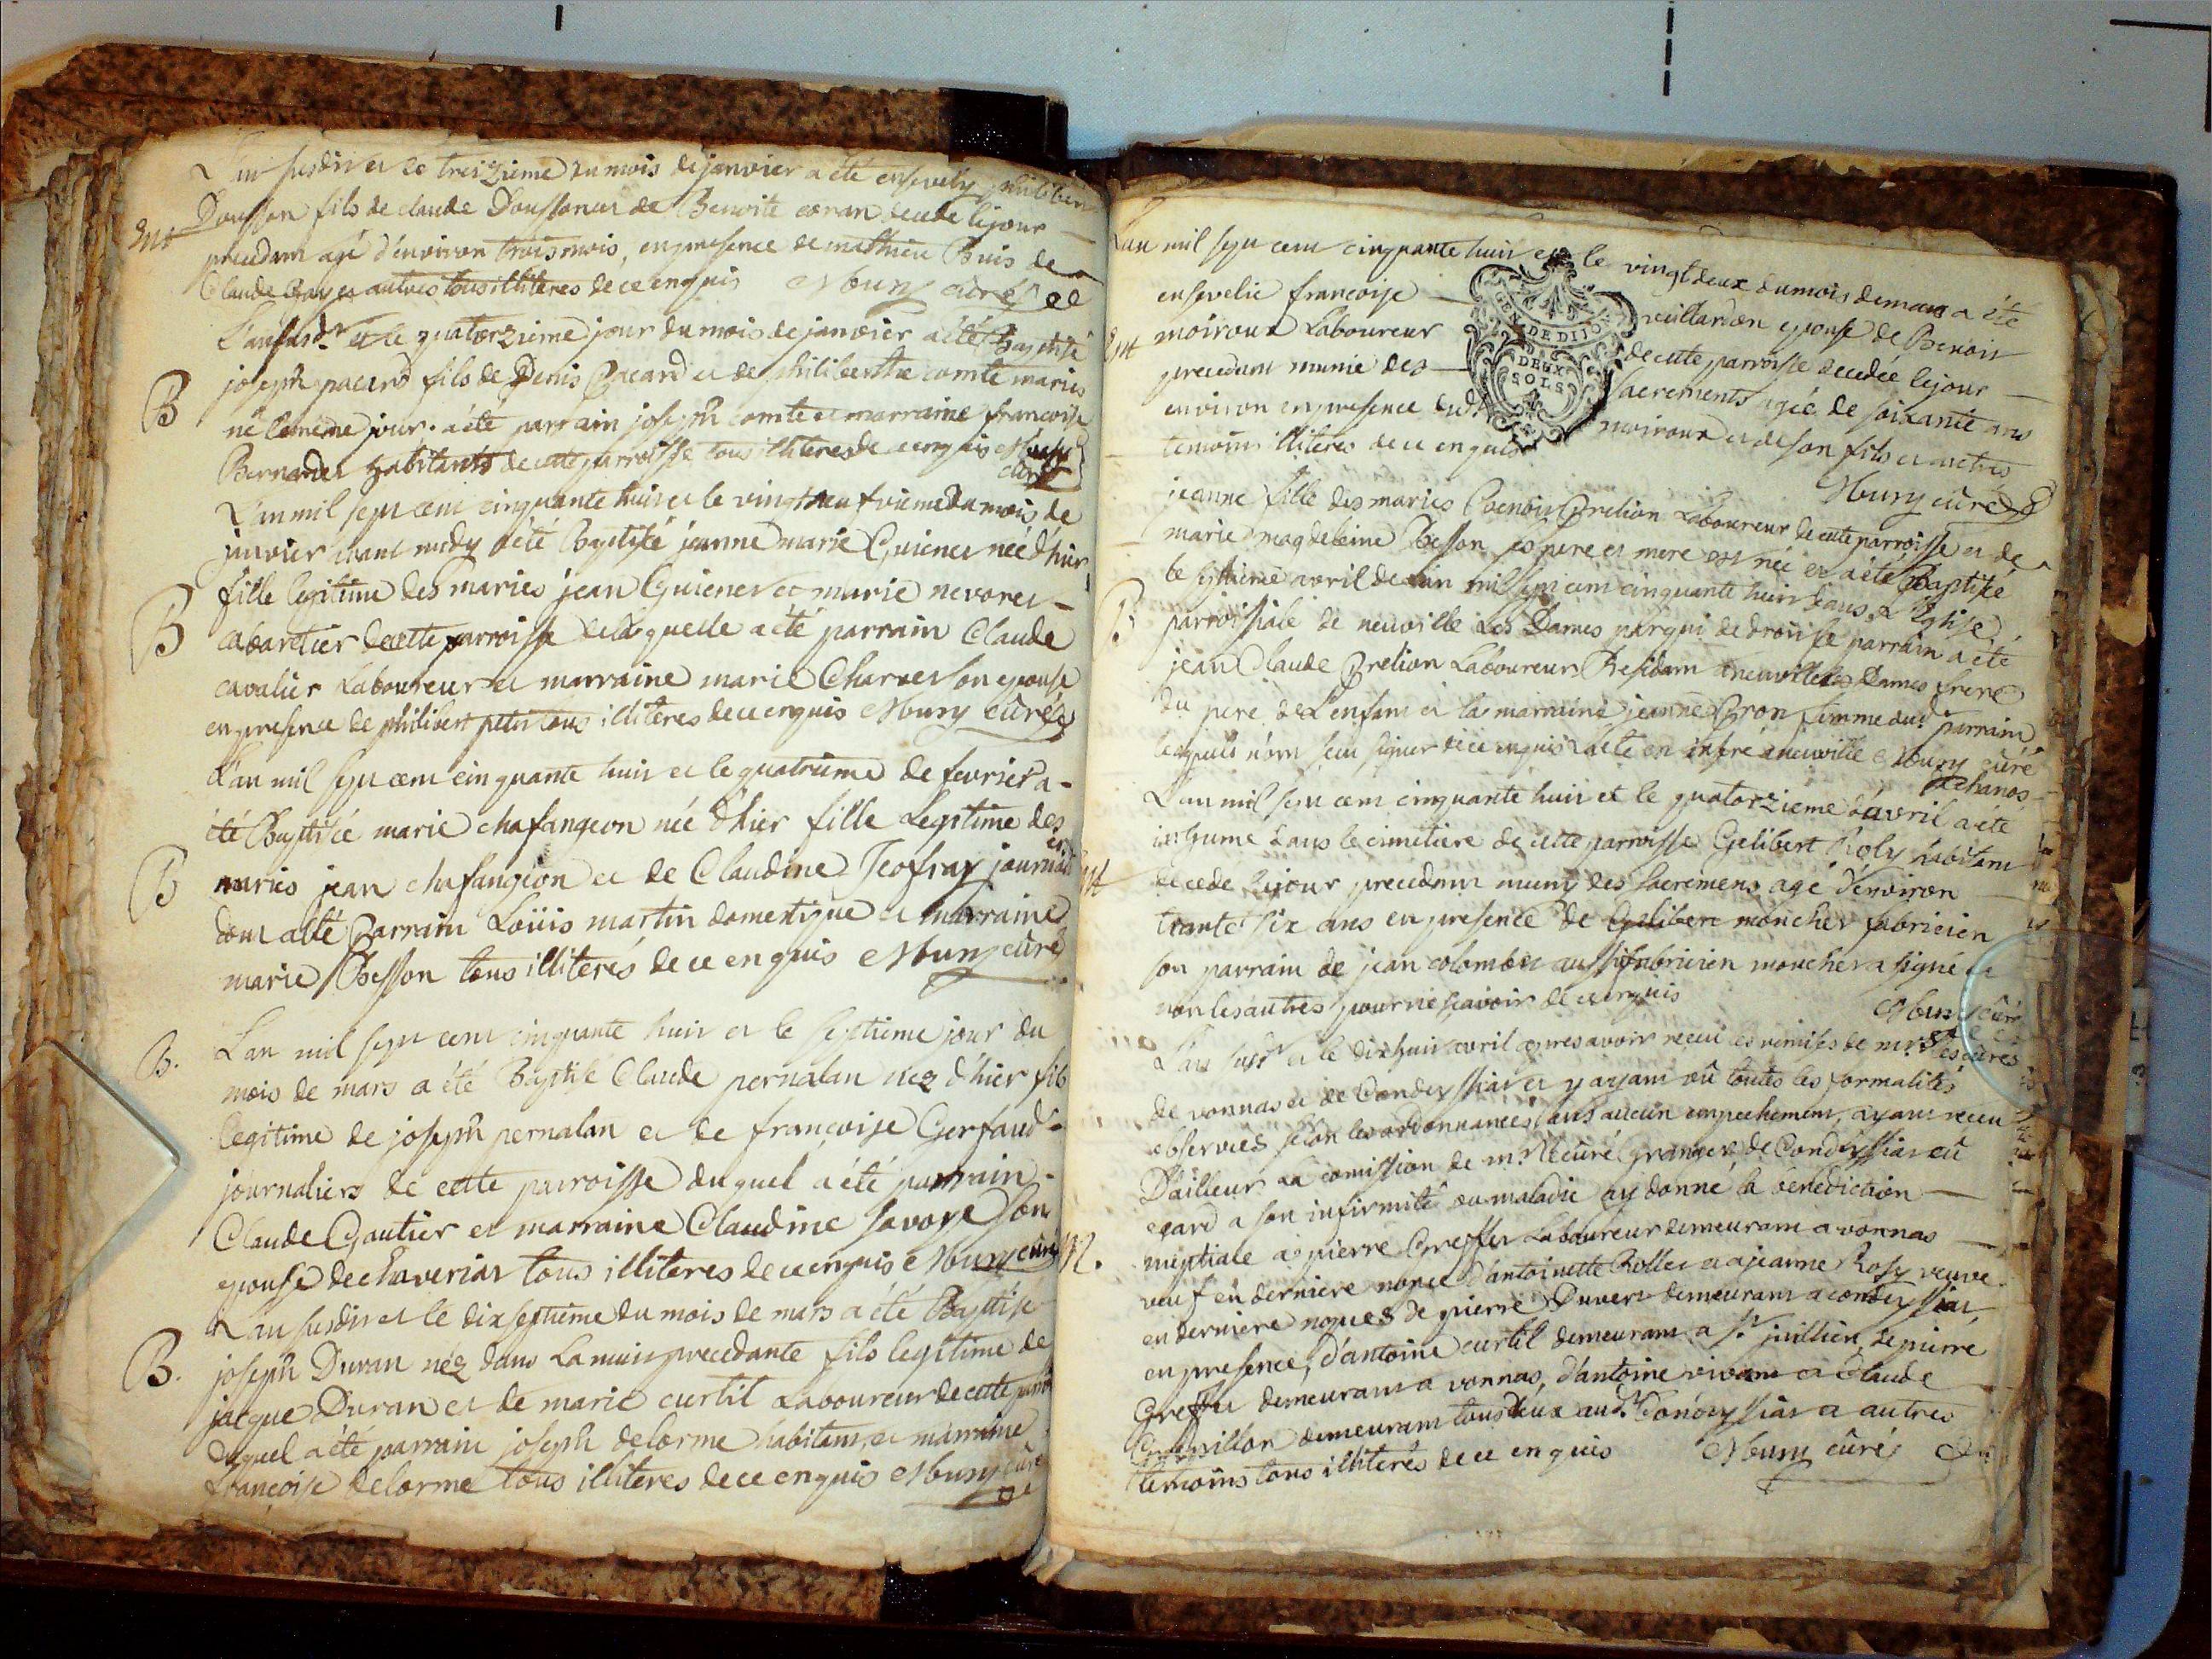 L'an susdit et le treizieme du mois de janvier a été ensevely philibert
Mt
Dousson fils de claude Dousson et de Benoite decede le jour
precedent agé d'environ trois mois, en presence de mathieu Buis de
Claude et autres tous illiteres de ce enquis Mbuny curé
L'an susdt et le quatorzieme jour du mois de janvier a été Baptisé
B
joseph pacard fils de Denis Pacard et de philiberthe comte mariés
né le même jour. a été parrain joseph comte et marraine francoise
Bernarde habitants de cette parroisse tous illiteres de ce enquis Mbuny
curé
L'an mil sept cent cinquante huit et le vingt neuf vieme du mois de
janvier avant midy a été Baptisé jeanne marie Guienet née d'hier
B
fille legitime des mariés jean Guienet et marie nevoret
cabaretier de cette parroisse de laquelle a été parrain Claude
cavalier Laboureur et marraine marie Charvet son epouse
en presence de philibert petit tous illiteres de ce enquis Mbuny curé
L'an mil sept cent cinquante huit et le quatrieme de fevrier a
été Baptisée marie chafangeon née d'hier fille Legitime des
B
mariés jean chafangeon et de Claudine Jeofray journaliers
dont a été Parrain Loüis martin domestique et marraine
marie Besson tous illiterés de ce enquis Mbuny curé
B.
L'an mil sept cent cinquante huit et le septieme jour du
mois de mars a été Baptisé Claude pernalan nez d'hier fils
legitime de joseph pernalan et de françoise Gerfaud
journaliers de cette parroisse duquel a été parrain
Claude Gautier et marraine Claudine savoye son
epouse de chaveriat tous illiteres de ce enquis Mbuny curé
L'an susdit et le dix septieme du mois de mars a été Baptisé
B.
joseph Duran néz dans La nuit precedante fils legitime de
jacque Duran et de marie curtil Laboureur de cette parroisse
duquel a été parrain joseph delorme habitant, et marraine
françoise delorme tous illiteres de ce enquis Mbuny curé
L'an mil sept cent cinquante huit et le vingt deux du mois de mars a été
ensevelie francoise veillardon epouse de Benoit
Mt
moiroux Laboureur de cette parroisse decedée le jour
precedent munie des sacrements agée de soixante ans
environ en presence dudt moiroux et de son fils et autres
temoins illiteres de ce enquis
Mbuny curé
GEN. DE DIJON
DEUX
SOLS
jeanne fille des mariés Benoit Brelion Laboureur de cette parroisse et de
marie magdeleine Besson ses pere et mere est née et a été Baptisé
le septieme avril de l'an mil sept cent cinquante huit dans L'Eglise
B.
parroissiale de neuville Les Dames par qui de droit le parrain a été
jean Claude Brelion Laboureur Residant a neuville les Dames frere
du pere de L'enfant et la marraine jeanne Bron femme dudt parrain
lesquels n'ont sceu signer de ce enquis a neuville Mbuny curé
de chanos
L'an mil sept cent cinquante huit et le quatorzieme d'avril a été
inhumé dans le cimetiere de cette parroisse Gelibert Roly habitant
Mt
decede le jour precedent muny des sacremens agé d'environ
trante six ans en presence de Gelibert moncher fabricien
son parrain de jean colombet aussi fabricien moncher a signé et
non les autres pour ne scavoir de ce enquis
Mbuny curé
L'an susdt et le dix huit avril apres avoir receu les remises de mrs les curés
de vonnas et de Condeyssiat et y ayant eû toutes les formalités
observées selon les ordonnances sans aucun empechement, ayant receu
D'ailleur La comission de mr le curé Granger de Condeyssiat eû
egard a son infirmité ou maladie ay donné la benediction
M.
nuptiale a pierre Greffet Laboureur demeurant a vonnas
veuf en derniere nopce d'antoinette Rollet et a jeanne Rosy veuve
en derniere nopces de pierre Duvert demeurant a condeyssiat,
en presence, d'antoine curtil demeurant a st jullien, de pierre
Greffet demeurant a vonnas, d'antoine vivant et Claude
demeurant tous deux audt Condeyssiat et autres
temoins tous illiterés de ce enquis Mbuny curé